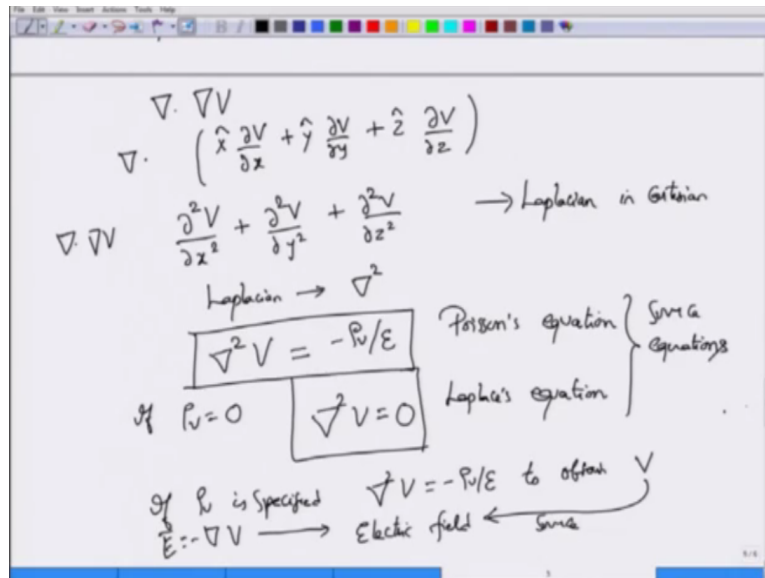 File Edit View Insert Actions Tools Help
∇. ∇V
∇. ( x̂ ∂V/∂x + ŷ ∂V/∂y + ẑ ∂V/∂z )
∇. ∇V ∂²V/∂x² + ∂²V/∂y² + ∂²V/∂z² → Laplacian in Cartesian
Laplacian → ∇²
∇²V = -ρv/ε Poisson's equation
If ρv = 0 ∇²V = 0 Laplace's equation
equations
If ρv is Specified ∇²V = -ρv/ε to obtain V
E = -∇V → Electric field
5/6